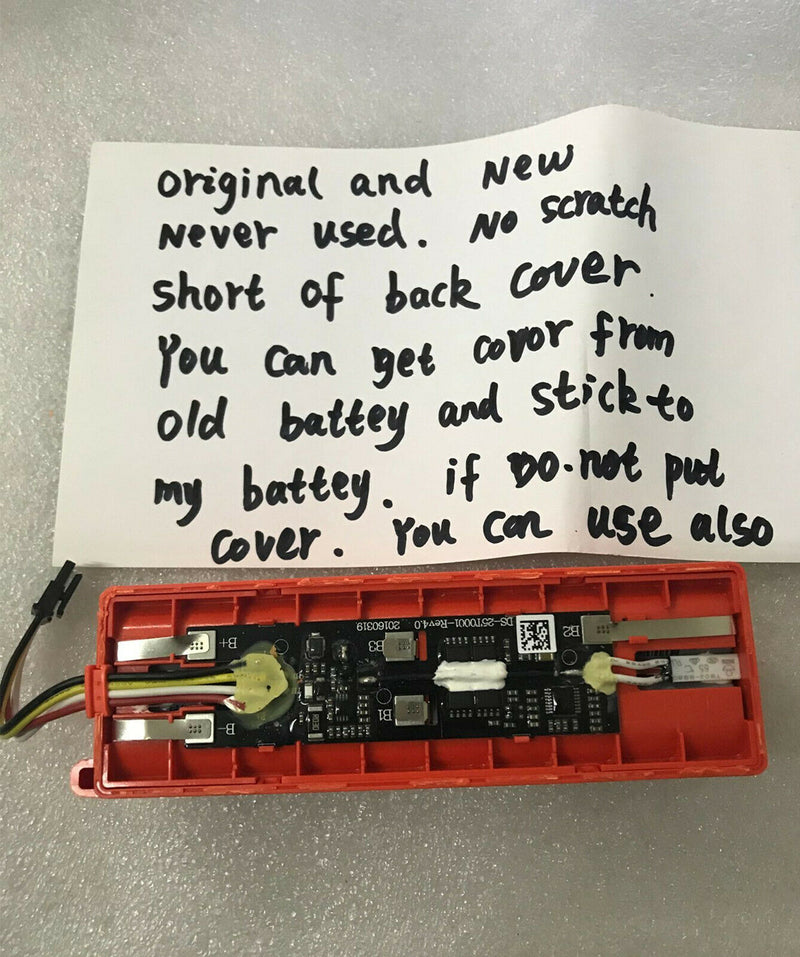 original and New
Never used. No scratch
short of back cover.
You can get covor from
old battey and stick to
my battey. if Do.not put
cover. You can use also
DS-25T0001-Rev4.0 20160319
B+
B3
B2
B1
B-